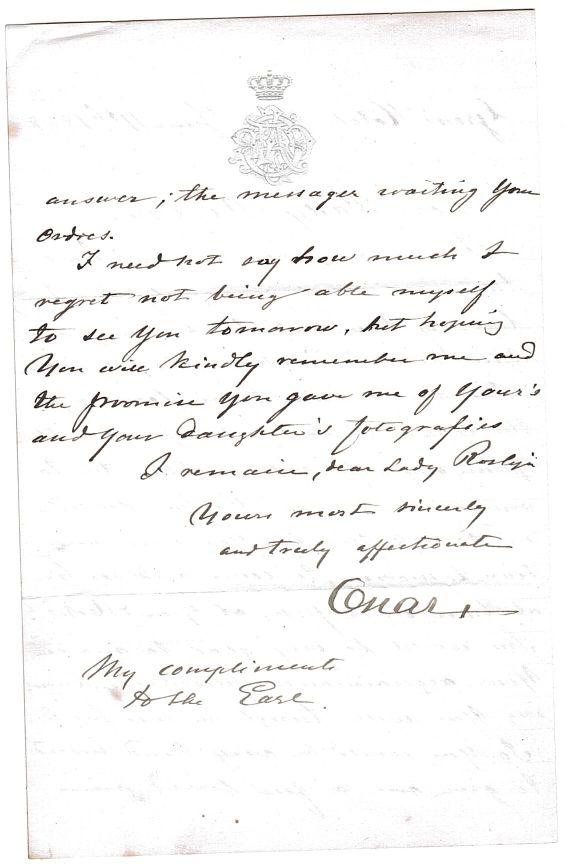 answer; the messager waiting your
ordres.
I need not say how much I
regret not being able myself
to see you tomorrow, but hoping
You will kindly remember me and
the promise you gave me of Your's
and Your Daughter's fotografies
I remain, dear Lady Roslyn
Yours most sincerly
and truly affectionate
Oscar,
My compliments
to the Earl.